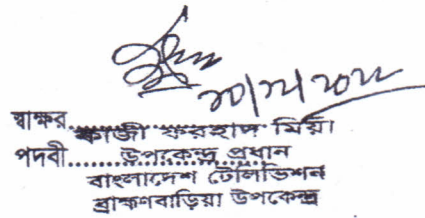 স্বাক্ষর..................
কাজী ফরহাদ মিয়া
পদবী..................
উপকেন্দ্র প্রধান
বাংলাদেশ টেলিভিশন
ব্রাহ্মণবাড়িয়া উপকেন্দ্র